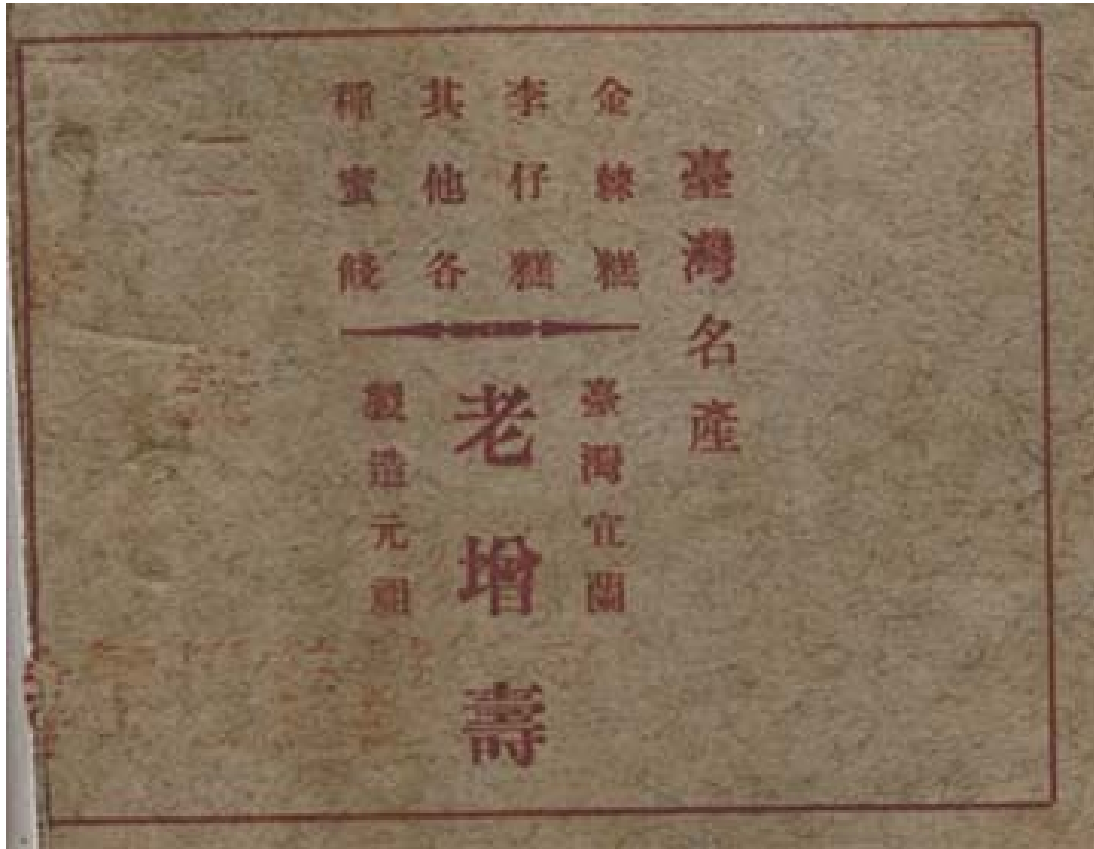 臺灣名產
金練糕
李仔糕
其他各
種蜜餞
臺灣宜蘭
老增壽
製造元祖